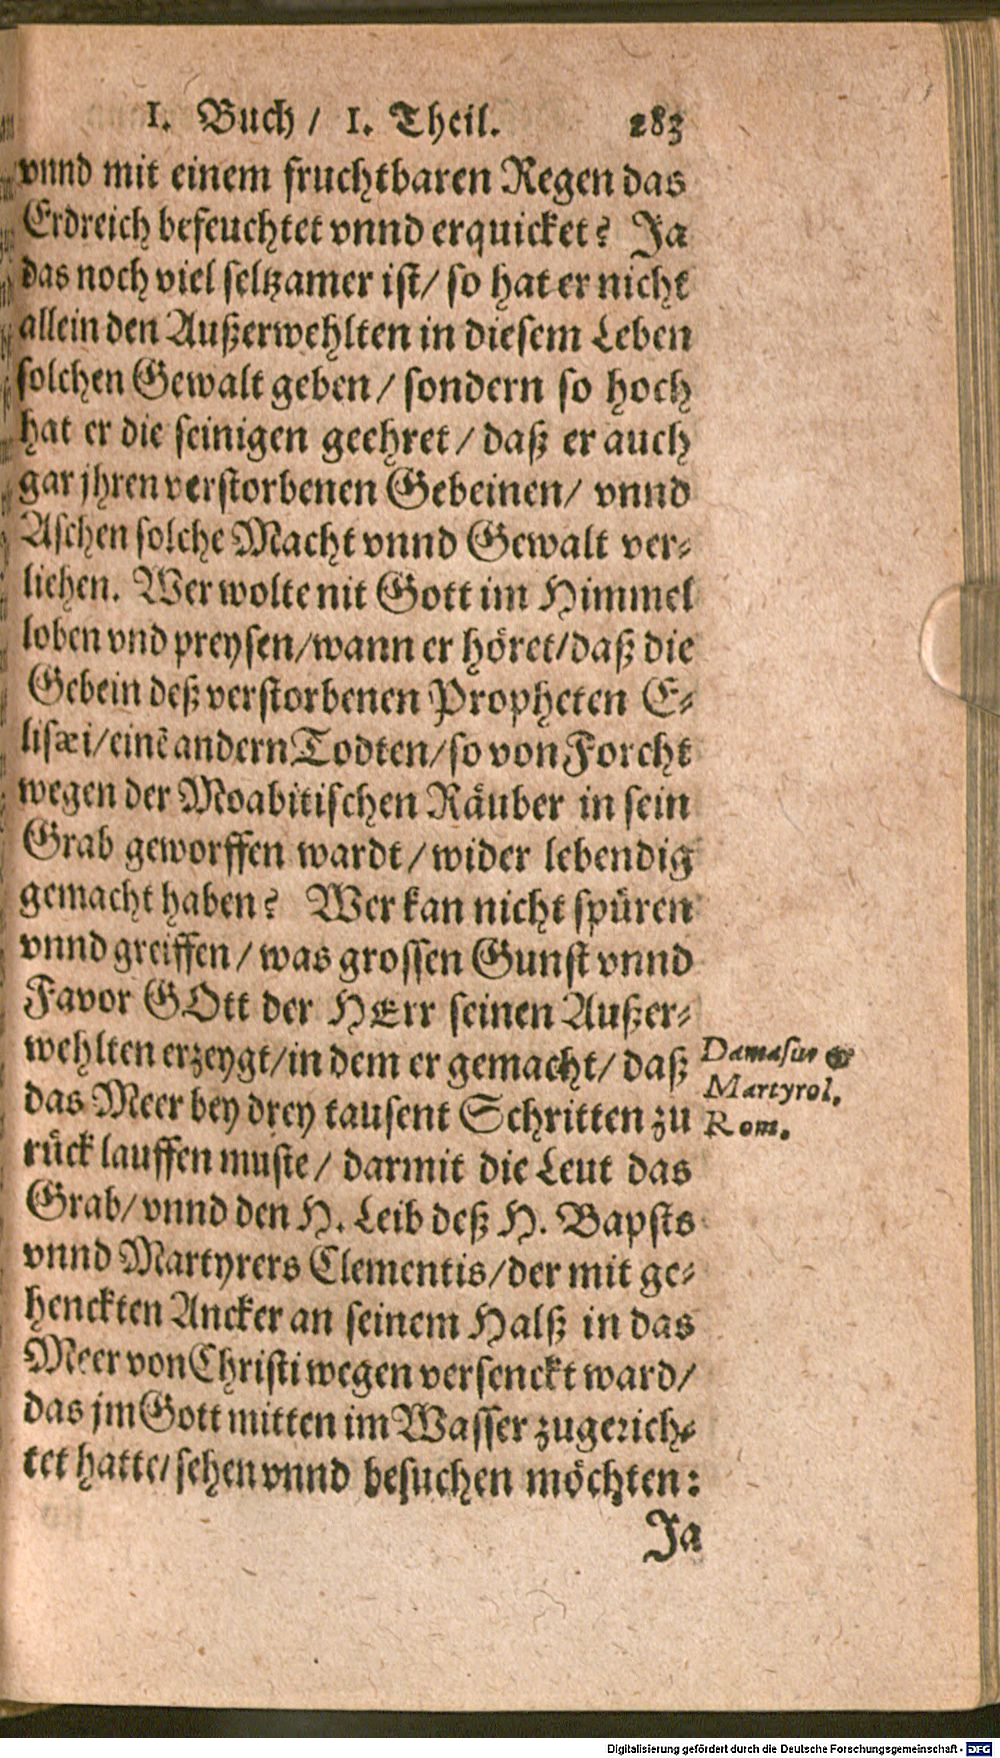 1. Buch / 1. Theil. 283
vnnd mit einem fruchtbaren Regen das
Erdreich befeuchtet vnnd erquicket? Ja
das noch viel seltzamer ist / so hat er nicht
allein den Außerwehlten in diesem Leben
solchen Gewalt geben / sondern so hoch
hat er die seinigen geehret / daß er auch
gar jhren verstorbenen Gebeinen / vnnd
Aschen solche Macht vnnd Gewalt ver⸗
liehen. Wer wolte nit Gott im Himmel
loben vnd preysen / wann er höret / daß die
Gebein deß verstorbenen Propheten E⸗
lisæi / einẽ andern Todten / so von Forcht
wegen der Moabitischen Räuber in sein
Grab geworffen wardt / wider lebendig
gemacht haben? Wer kan nicht spüren
vnnd greiffen / was grossen Gunst vnnd
Favor GOtt der HErr seinen Außer⸗
wehlten erzeygt / in dem er gemacht / daß
das Meer bey drey tausent Schritten zu
rück lauffen muste / darmit die Leut das
Grab / vnnd den H. Leib deß H. Bapsts
vnnd Martyrers Clementis / der mit ge⸗
henckten Ancker an seinem Halß in das
Meer von Christi wegen versenckt ward /
das jm Gott mitten im Wasser zugerich⸗
tet hatte / sehen vnnd besuchen möchten:
Ja
Damasus &
Martyrol.
Rom.
Digitalisierung gefördert durch die Deutsche Forschungsgemeinschaft - DFG